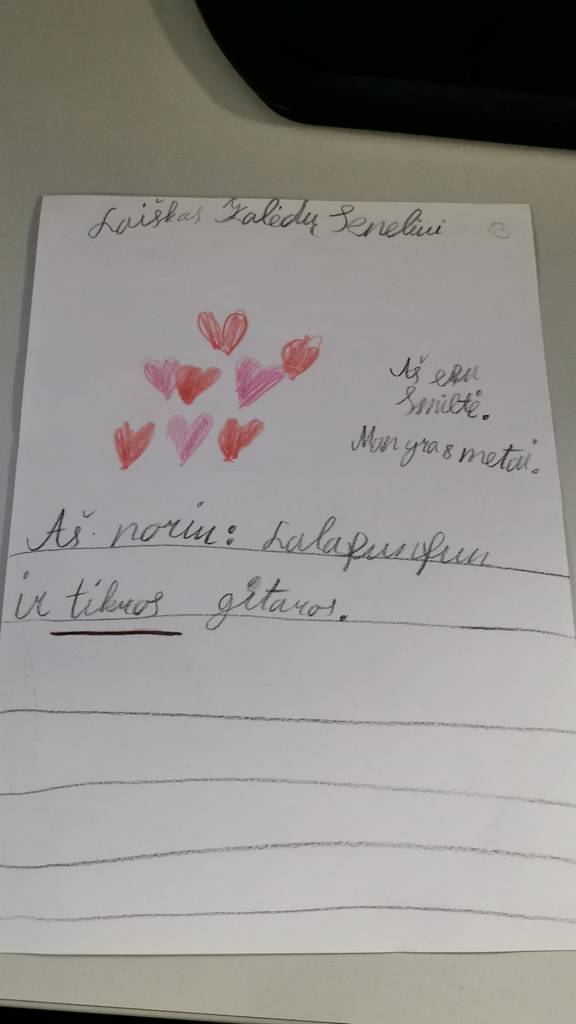 Laiškas Kalėdų Seneliui
Aš esu
Smiltė.
Man yra 8 metai.
Aš noriu: Lalafunfun
ir tikros gitaros.